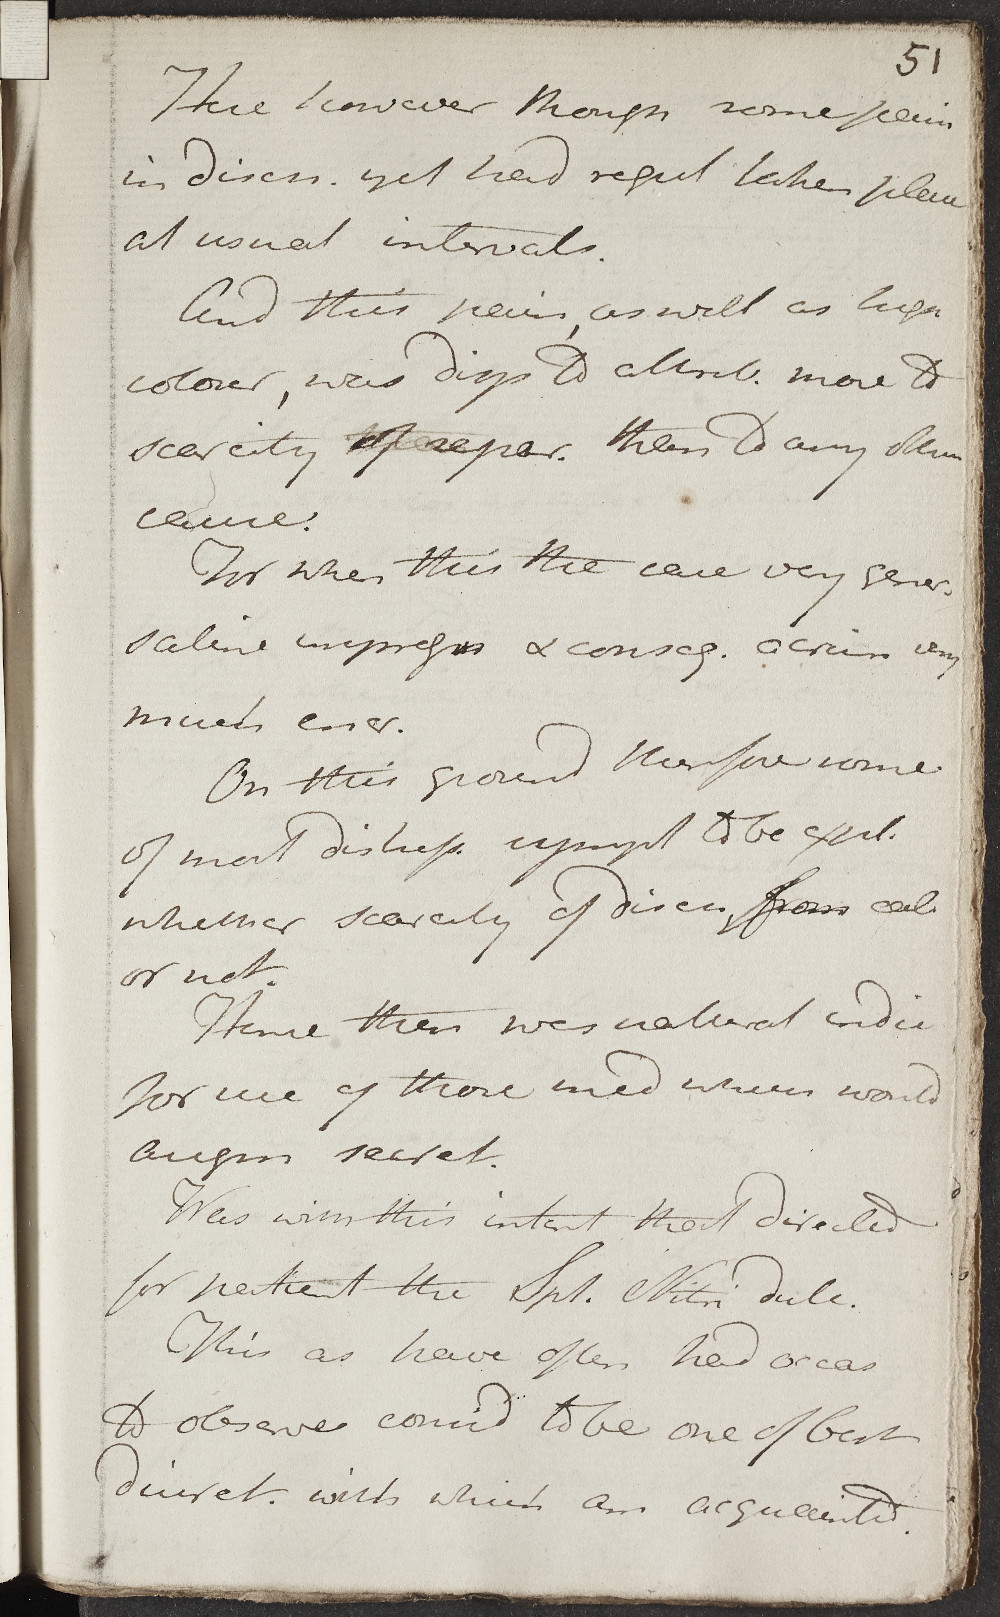 51
Here however though some pain
in disch. yet had regul taken place
at usual intervals.
And this pain, as well as high
colour, was disp to attrib. more to
scarcity of separ. than to any other
cause.
For when this the case very gener.
saline impregn & conseq. acrim very
much encr.
On this ground therefore some
of most distress. sympt to be expl.
whether scarcity of disch from cal
or not.
Hence then was natural indic
for use of those med which would
augm secret.
Was with this intent that directed
for patient the Spt. Nitri dulc.
This as have often had occas
to observe consid to be one of best
diuret. with which am acquainted.